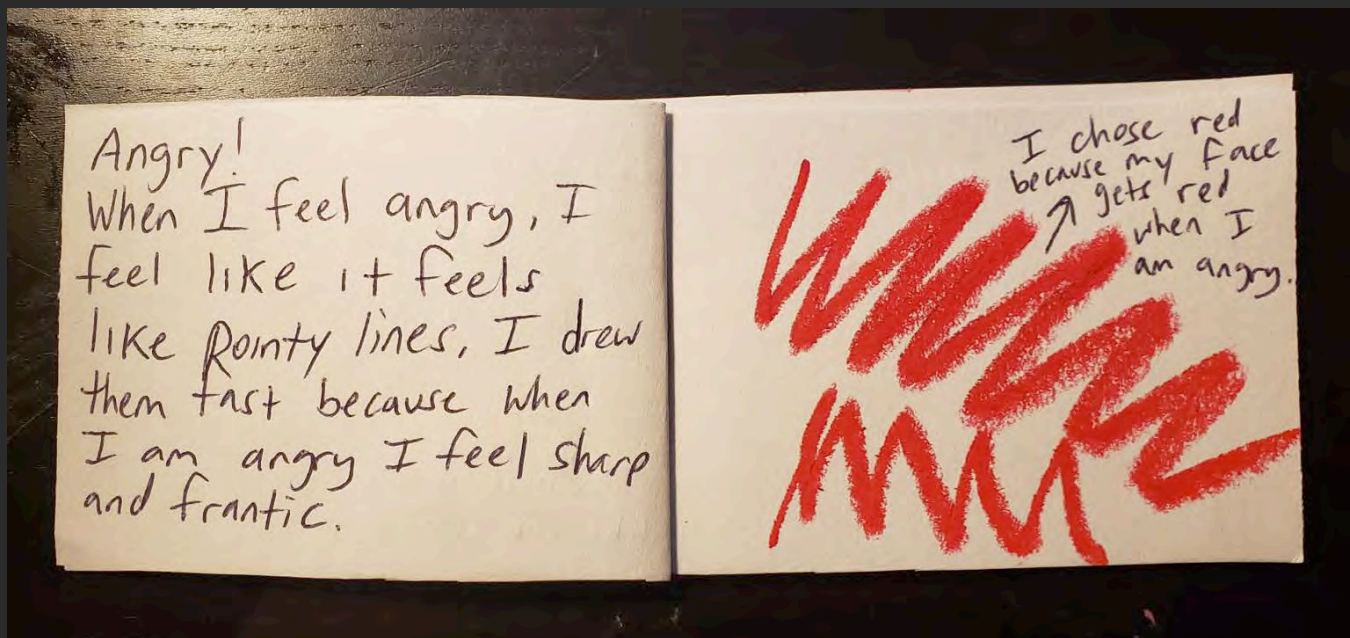 Angry!
When I feel angry, I
feel like it feels
like Pointy lines, I drew
them fast because when
I am angry I feel sharp
and frantic.
I chose red
because my face
gets red
when I
am angry.